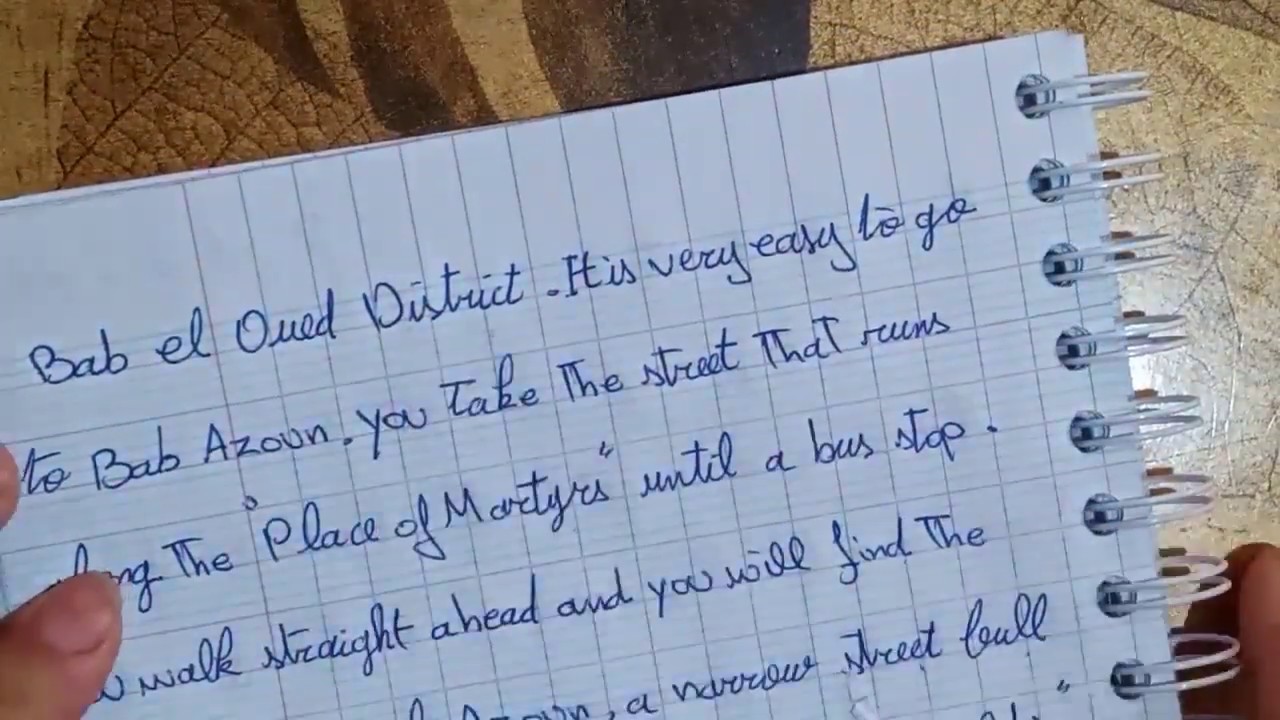 Bab el Oued District. It is very easy to go
to Bab Azoun. you Take The street That runs
along The "Place of Martyrs" until a bus stop.
walk straight ahead and you will find The
, a narrow street full